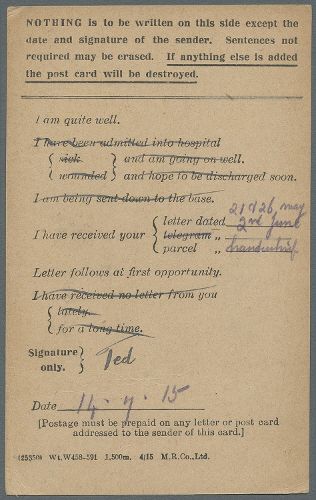 NOTHING is to be written on this side except the
date and signature of the sender. Sentences not
required may be erased. If anything else is added
the post card will be destroyed.
I am quite well.
I have been admitted into hospital
{ sick } and am going on well.
{ wounded } and hope to be discharged soon.
I am being sent down to the base.
21 & 26 may
I have received your { letter dated 2nd June
telegram „
parcel „ handkerchief
Letter follows at first opportunity.
I have received no letter from you
{ lately.
{ for a long time.
Signature } Ted
only. }
Date 14. 7. 15
[Postage must be prepaid on any letter or post card
addressed to the sender of this card.]
(25350) Wt.W458-591 1,500m. 4/15 M.R.Co.,Ltd.